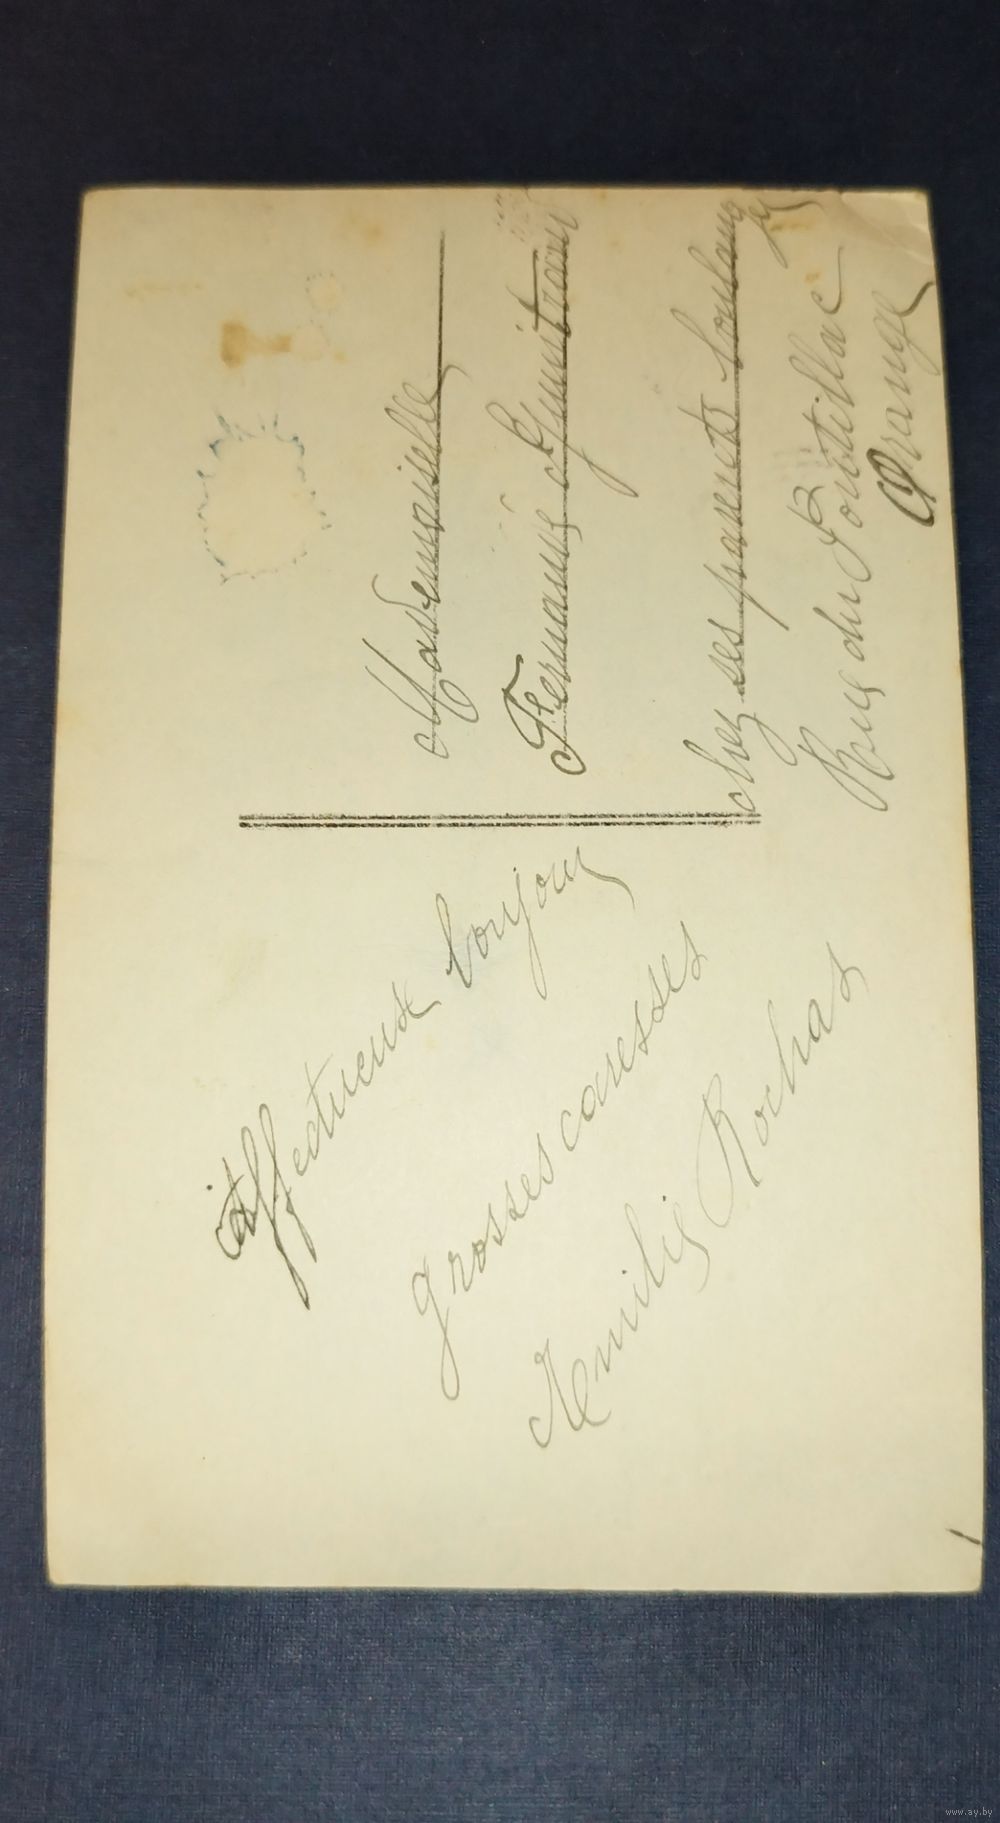 Affectueux bonjour
grosses caresses
Emilie Rochas
Mademoiselle
chez ses parents boulanger
Rue du Pourtillac
Orange
www.ay.by